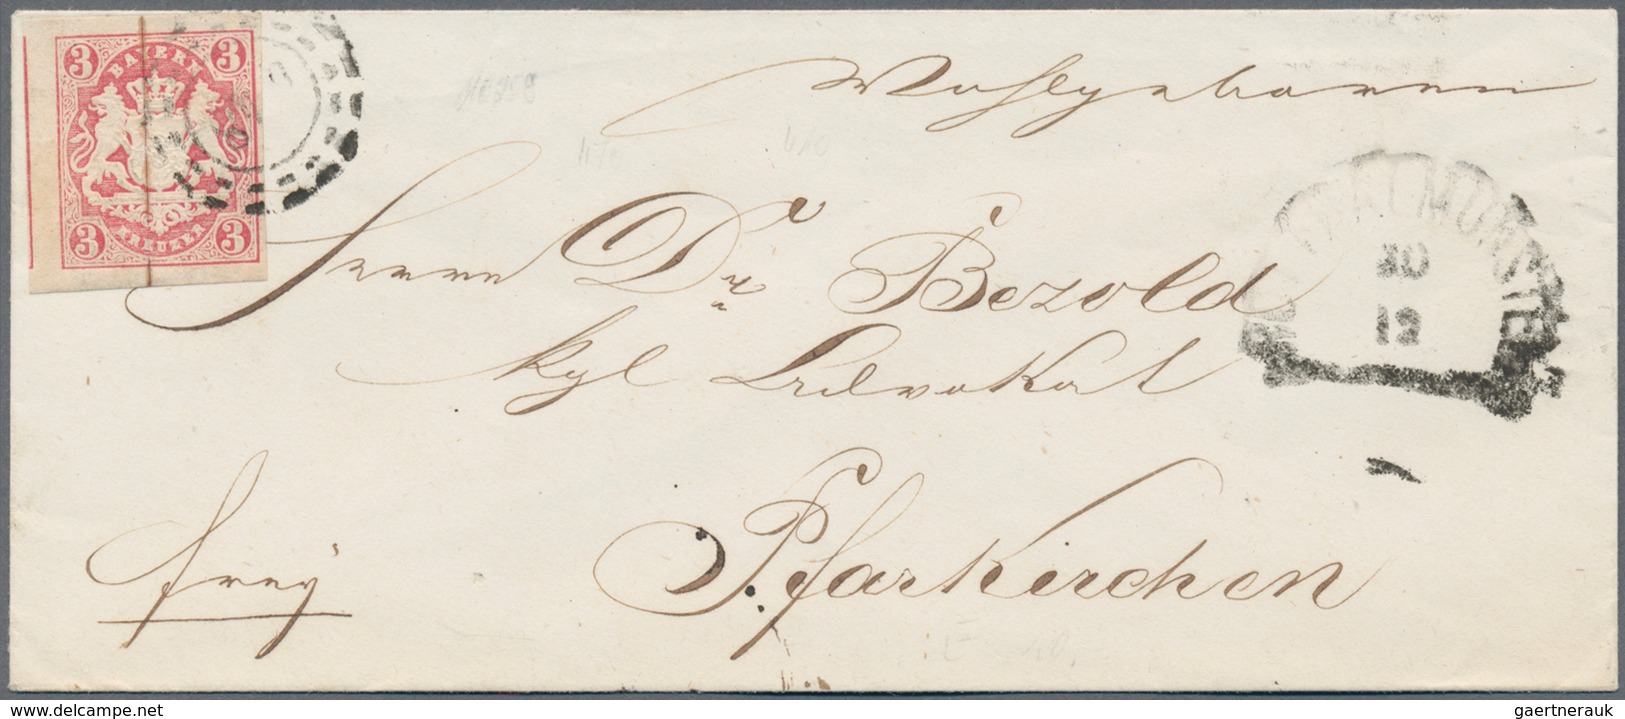 3 BAYERN 3
3 KREUZER 3
Wohlgeboren
Herrn Dr. Bezold
kgl Advokat
Pfarrkirchen
frey
30
12
gaertnerauk
www.delcampe.net